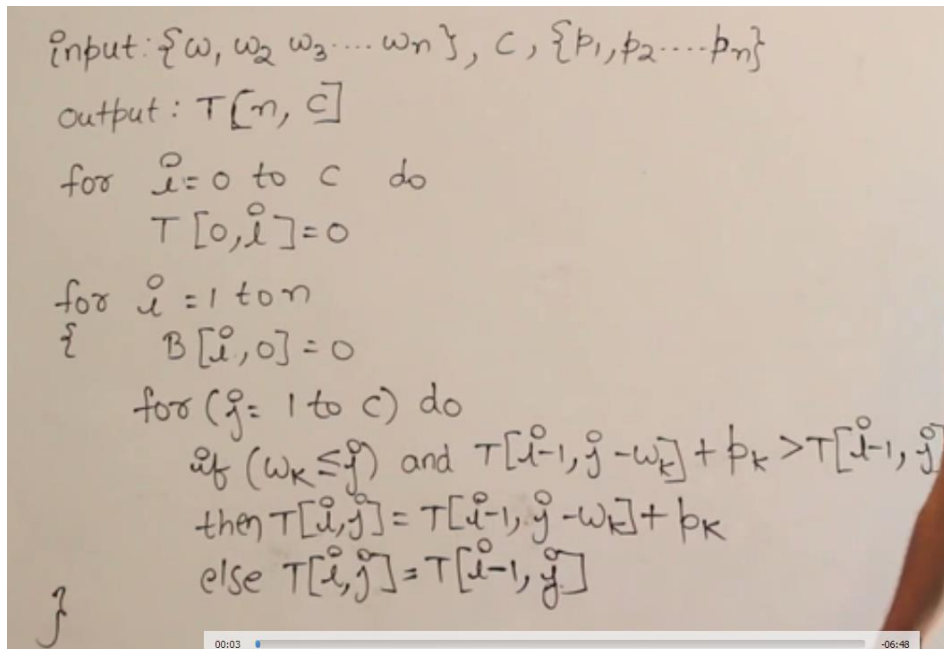 input: {w, w2 w3 .... wn}, C, {p1, p2 .... pn}
output: T[n, C]
for i=0 to C do
T[0,i]=0
for i=1 to n
{ B[i,0]=0
for (j= 1 to C) do
if (wk ≤ j) and T[i-1, j-wk] + pk > T[i-1, j]
then T[i,j] = T[i-1, j-wk] + pk
else T[i,j] = T[i-1, j]
}
00:03 -06:48